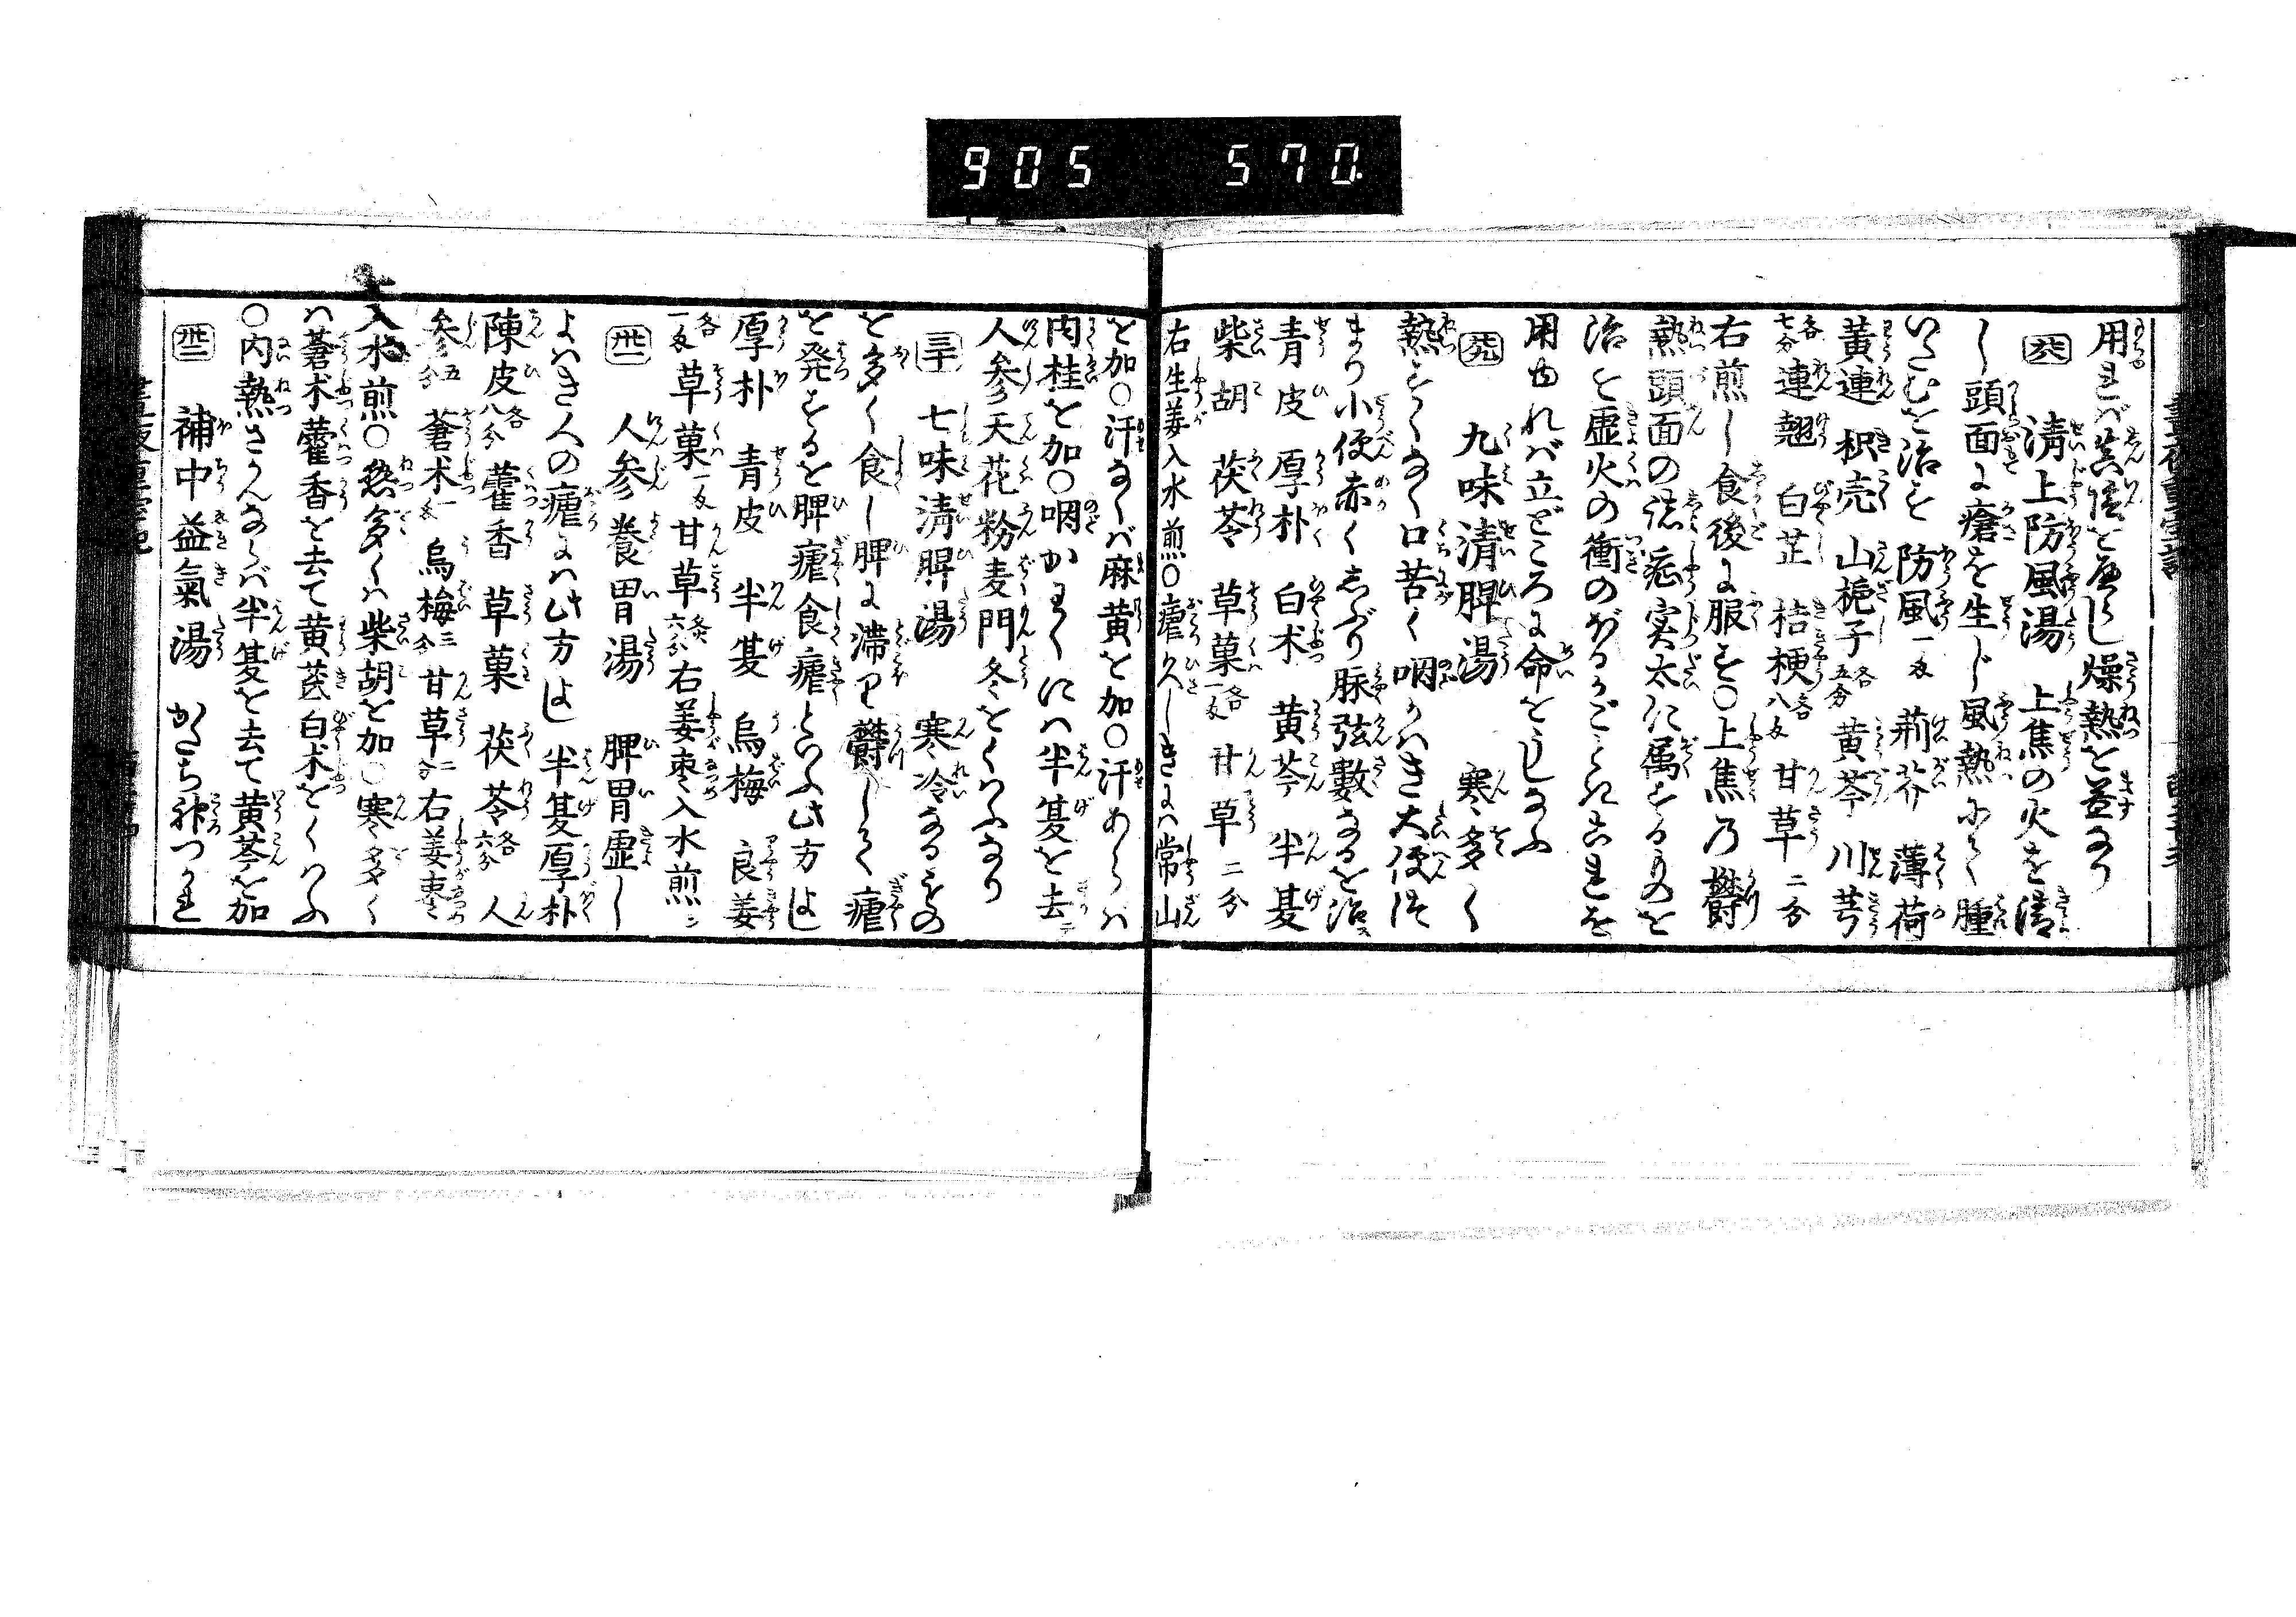 905 570
用ればを燥熱を益すなり
清上防風湯 上焦の火を清
し頭面に瘡を生じ風熱にて腫
いたむを治す 防風 一匁 荊芥 薄荷
黄連 枳売 山梔子 各五分 黄芩 川芎
各七分 連翹 白芷 桔梗 各八匁 甘草 二分
右煎し食後に服す○上焦乃欝
熱頭面の諸症実太に属するものを
治す虚火の衝のぼるがごときこれを
用ゆれば立どころに命をうしなふ
九味清脾湯 寒多く
熱すくなく口苦く咽かはき大便
まり小便赤くしぶり脉弦数なるを治ス
青皮 厚朴 白朮 黄芩 半夏
柴胡 茯苓 草菓 各一匁 甘草 二分
右生姜入水煎○瘧久しきには常山
を加○汗なくば麻黄を加○汗あらは
肉桂を加○咽かはくには半夏を去ニ
人参天花粉麦門冬をくはふなり
三十 七味清脾湯 寒冷なるもの
を多く食し脾に滞り欝して瘧
を発するを脾瘧食瘧といふ此方よし
厚朴 青皮 半夏 烏梅 良姜
各一匁 草菓 一匁 甘草 炙六分 右姜棗入水煎シ
卅一 人参養胃湯 脾胃虚し
よはき人の瘧には此方よし 半夏厚朴
陳皮 各八分 藿香 草菓 茯苓 各六分 人
参 五分 蒼朮 一匁 烏梅 三分 甘草 二分 右姜棗
入水煎○熱多くは柴胡を加○寒多く
は蒼朮藿香を去て黄芪白朮をくはふ
○内熱さかんならば半夏を去て黄芩を加
卅二 補中益氣湯 かたち神つかれ